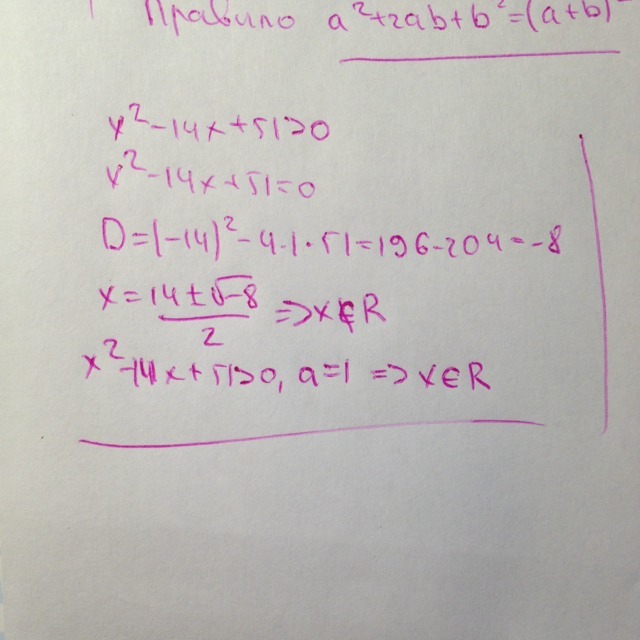 Правило a²+2ab+b²=(a+b)²
x²-14x+51>0
x²-14x+51=0
D=(-14)²-4·1·51=196-204=-8
x=14±√-8/2 =>x∉R
x²-14x+51>0, a=1 =>x∈R